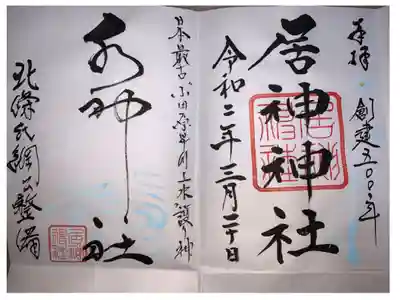 奉拝
創建五〇〇年
居神神社
居神神社
令和二年三月二十日
日本最古小田原早川上水護り神
水神社
北條氏綱公整備